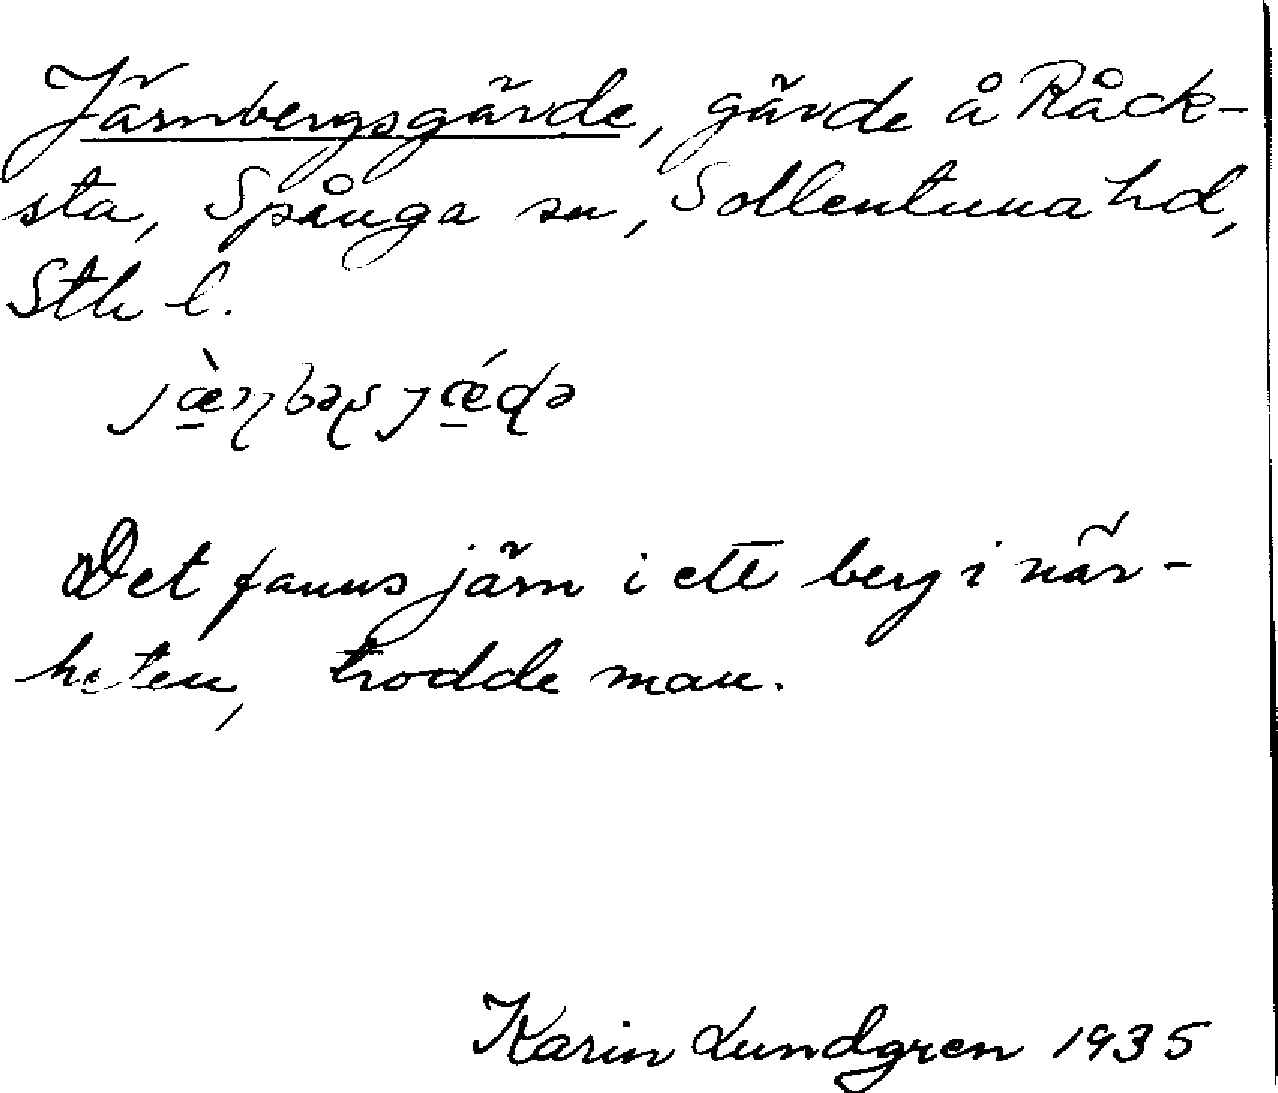 Järnbergsgärde, gärde å Råck-
sta, Spånga sn, Sollentuna hd,
Sth l.
Det fanns järn i ett berg i när-
heten, trodde man.
Karin Lundgren 1935